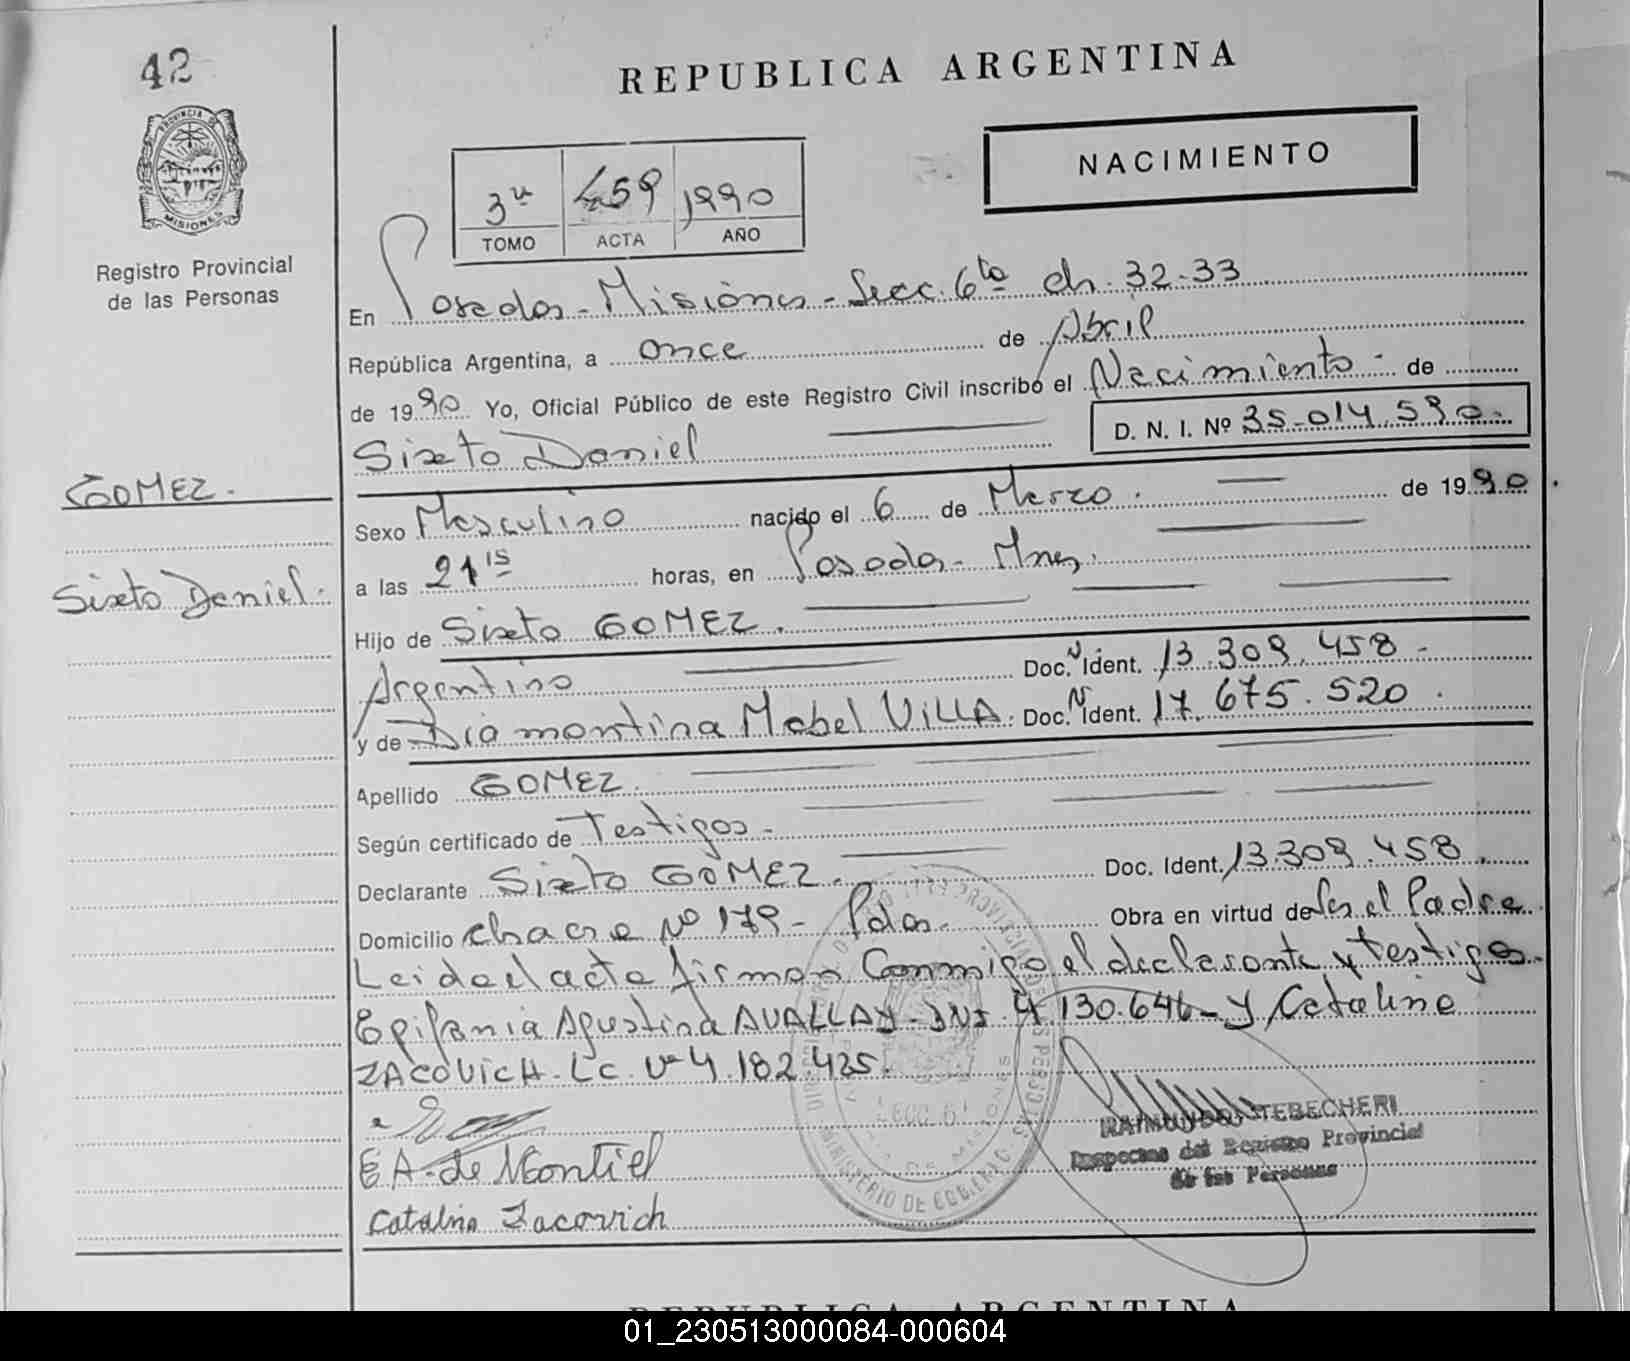 42
REPUBLICA ARGENTINA
NACIMIENTO
PROVINCIA DE
MISIONES
3º 459 1990
TOMO ACTA AÑO
Registro Provincial
de las Personas
En Posadas - Misiones - Secc. 6ta ch. 32-33
República Argentina, a once de Abril
de 1990 Yo, Oficial Público de este Registro Civil inscribo el Nacimiento - de
Sixto Daniel D. N. I. Nº 35-014.590-
GOMEZ.
Sexo Masculino nacido el 6 de Marzo. de 1990.
Sixto Daniel.
a las 21 15 horas, en Posadas - Mnes.
Hijo de Sixto GOMEZ.
Argentino Doc. N Ident. 13.309.458 -
y de Diamantina Mabel VILLA. Doc. Nº Ident. 17.675.520.
Apellido GOMEZ.
Según certificado de Testigos -
Declarante Sixto GOMEZ. Doc. Ident. 13.309.458
Domicilio Chacra Nº 179 - Pdas. Obra en virtud de Ser el Padre.
Leida el acta firman Conmigo el declarante y testigos -
Epifania Agustina AVALLAY - DNI. 4.130.646 - y Catalina
ZACOVICH. Lc. Nº 4.182.425.
RAIMUNDO STEBECHERI
Inspector del Registro Provincial
de las Personas
E A. de Montiel
MINISTERIO DE GOBIERNO
Catalina Zacovich
REPUBLICA ARGENTINA
01_230513000084-000604